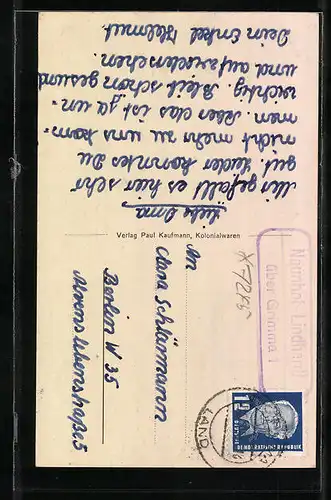 Liebe Oma
Mir gefällt es hier sehr
gut. Leider konntes Du
nicht mehr zu uns kom-
men. Aber das ist ja un-
wichtig. Bleib schön gesund
und auf wiedersehen
Dein Enkel Helmut.
Verlag Paul Kaufmann, Kolonialwaren
An
Clara
Berlin W 35
K-7245
Naunhof-Lindhardt
über Grimma 1
12
DEUTSCHE
DEMOKRATISCHE REPUBLIK
LAND